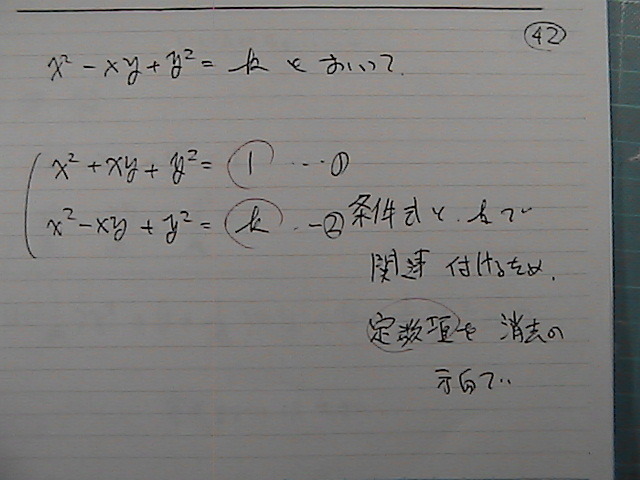 42
x² - xy + y² = k とおいて
x² + xy + y² = 1 … ①
x² - xy + y² = k … ② 条件式と、kで
関連付けるため、
定数項を消去の
方向で..